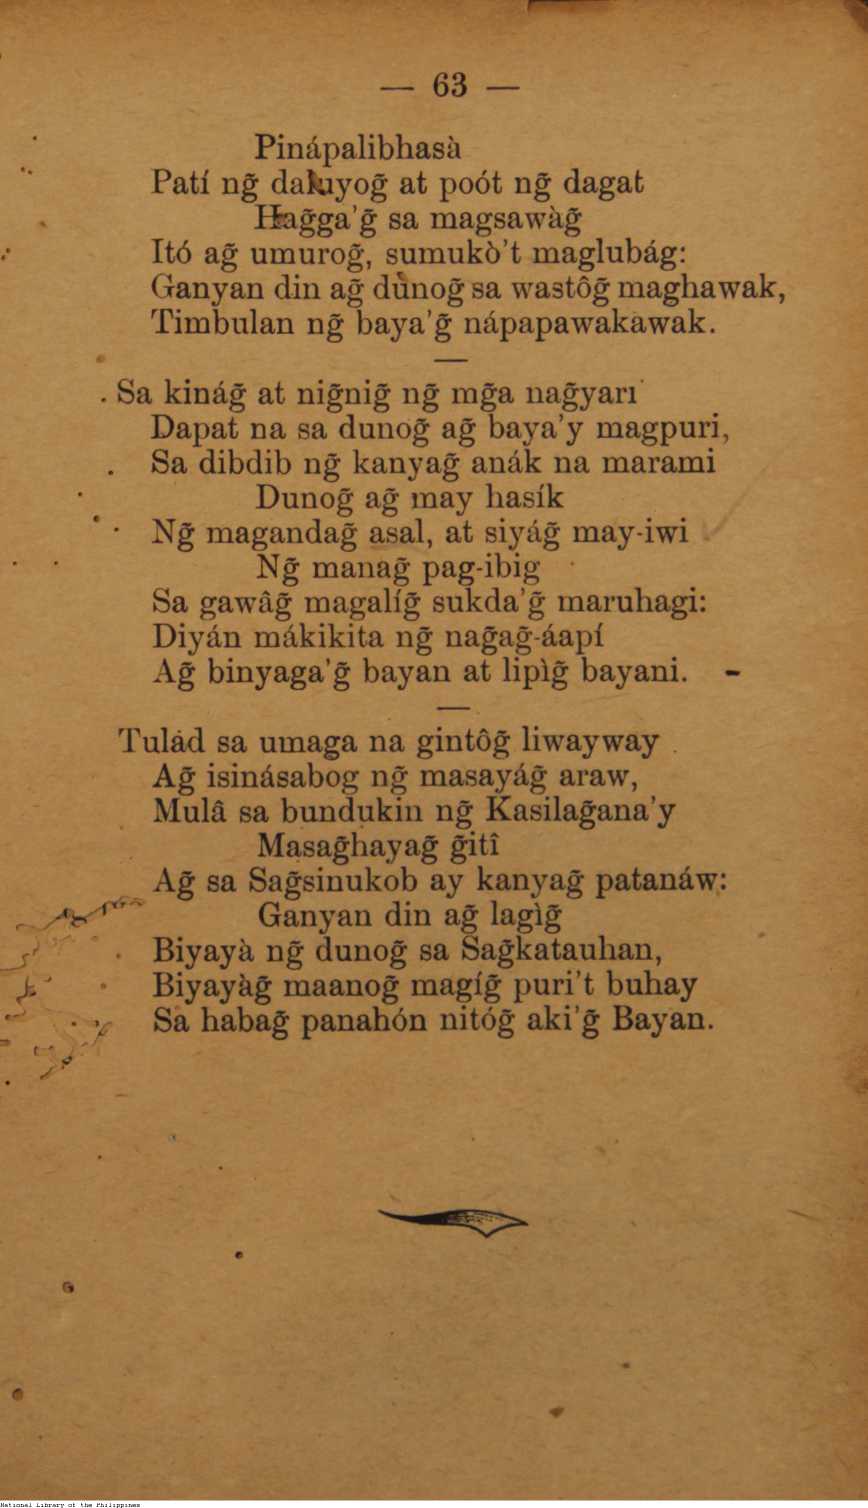 — 63 —
Pinápalibhasà
Patí ng̃ daluyog̃ at poót ng̃ dagat
Hag̃ga'g̃ sa magsawàg̃
Itó ag̃ umurog̃, sumukò't maglubág:
Ganyan din ag̃ dùnog̃ sa wastôg̃ maghawak,
Timbulan ng̃ baya'g̃ nápapawakawak.
—
Sa kinág̃ at nig̃nig̃ ng̃ mg̃a nag̃yari
Dapat na sa dunog̃ ag̃ baya'y magpuri,
Sa dibdib ng̃ kanyag̃ anák na marami
Dunog̃ ag̃ may hasík
Ng̃ magandag̃ asal, at siyág̃ may-iwi
Ng̃ manag̃ pag-ibig
Sa gawâg̃ magalíg̃ sukda'g̃ maruhagi:
Diyán mákikita ng̃ nag̃ag̃-áapí
Ag̃ binyaga'g̃ bayan at lipìg̃ bayani. -
—
Tulad sa umaga na gintôg̃ liwayway
Ag̃ isinásabog ng̃ masayág̃ araw,
Mulâ sa bundukin ng̃ Kasilag̃ana'y
Masag̃hayag̃ g̃itî
Ag̃ sa Sag̃sinukob ay kanyag̃ patanáw:
Ganyan din ag̃ lagìg̃
Biyayà ng̃ dunog̃ sa Sag̃katauhan,
Biyayàg̃ maanog̃ magíg̃ puri't buhay
Sa habag̃ panahón nitóg̃ aki'g̃ Bayan.
National Library of the Philippines